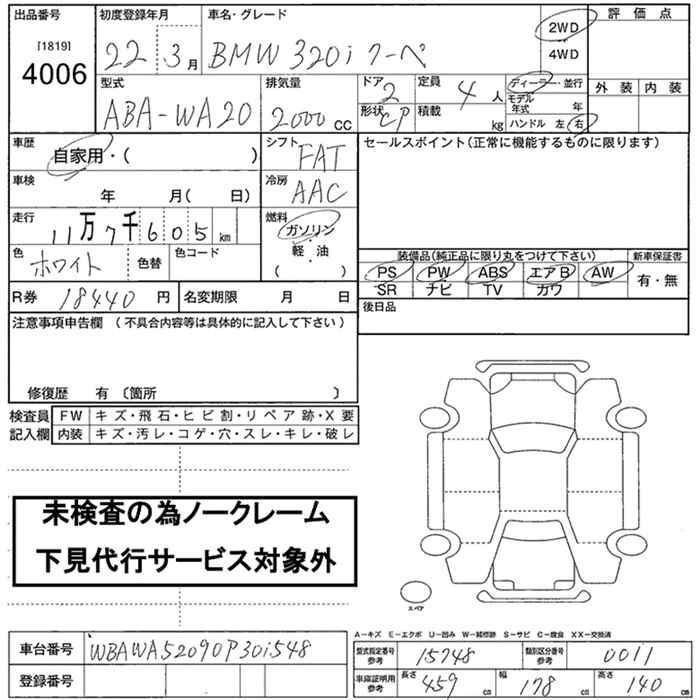 出品番号 初度登録年月 車名・グレード 評価点
[1819] 22年 3月 BMW 320i クーペ 2WD
4006 4WD
型式 排気量 ドア 2 定員 4人 ディーラー・並行 外装 内装
ABA-WA20 2000 cc 形状 CP 積載 kg モデル年式 年
ハンドル 左 右
車歴 シフト セールスポイント(正常に機能するものに限ります)
自家用・( ) FAT
車検 年 月( 日) 冷房 AAC
走行 11万7千605km 燃料 ガソリン・軽・油
( )
色 ホワイト 色替 色コード
装備品(純正品に限り丸をつけて下さい) 新車保証書
PS PW ABS エアB AW 有・無
SR ナビ TV カワ
R券 18440円 名変期限 月 日 後日品
注意事項申告欄 (不具合内容等は具体的に記入して下さい)
修復歴 有 〔箇所 〕
検査員 FW キズ・飛石・ヒビ割・リペア跡・X要
記入欄 内装 キズ・汚レ・コゲ・穴・スレ・キレ・破レ
未検査の為ノークレーム
下見代行サービス対象外
スペア
A-キズ E-エクボ U-凹み W-補修跡 S-サビ C-腐食 XX-交換済
車台番号 WBAWA52090P30i548 型式指定番号 参考 15748 類別区分番号 参考 0011
登録番号 車庫証明用 参考 長さ 459 cm 幅 178 cm 高さ 140 cm